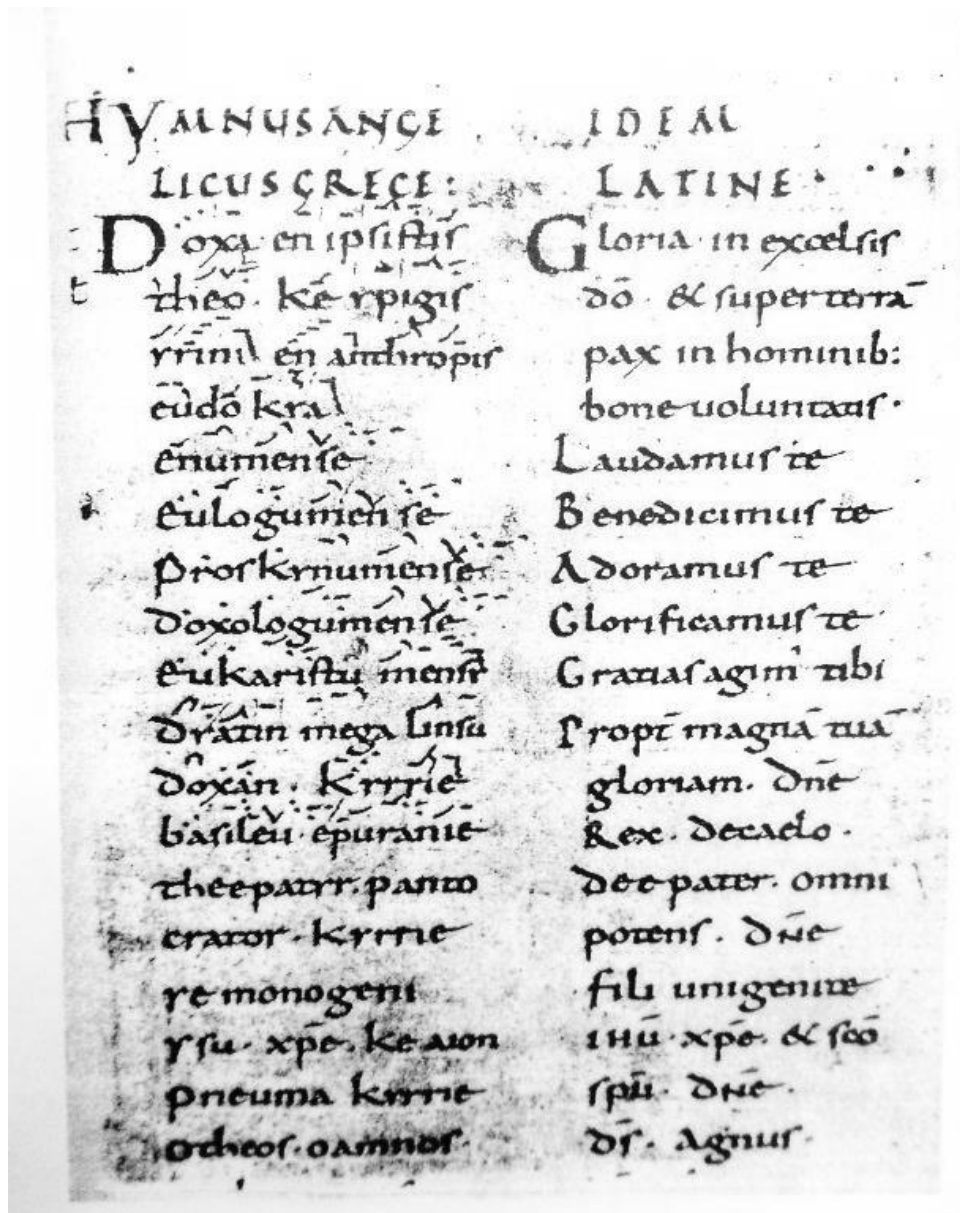 HYMNUS ANGE
LICUS GRECE:
Doxa en ipsistis
theo · Ke ypigis
yrini en anthropis
eudo kya
enumen se
Eulogumen se
Proskynumen se
Doxologumen se
Eukaristu men se
dyatin mega linsu
doxan · Kyrrie
basileu · epuranie
theepatyr · panto
crator · kyrrie
ye monogeni
ysu · xpē · ke aion
pneuma kyrrie
otheos · oamnos ·
IDEM
LATINE ·
Gloria in excelsis
dō · & super terrā
pax in hominib:
bone uoluntatis ·
Laudamus te
Benedicimus te
Adoramus te
Glorificamus te
Gratias agim' tibi
Propt̄ magnā tuā
gloriam · dn̄e
Rex · decaelo ·
dee pater · omni
potens · dn̄e
fili unigenite
ihū · xpē · & scō
spū · dn̄e ·
ds̄ · Agnus ·